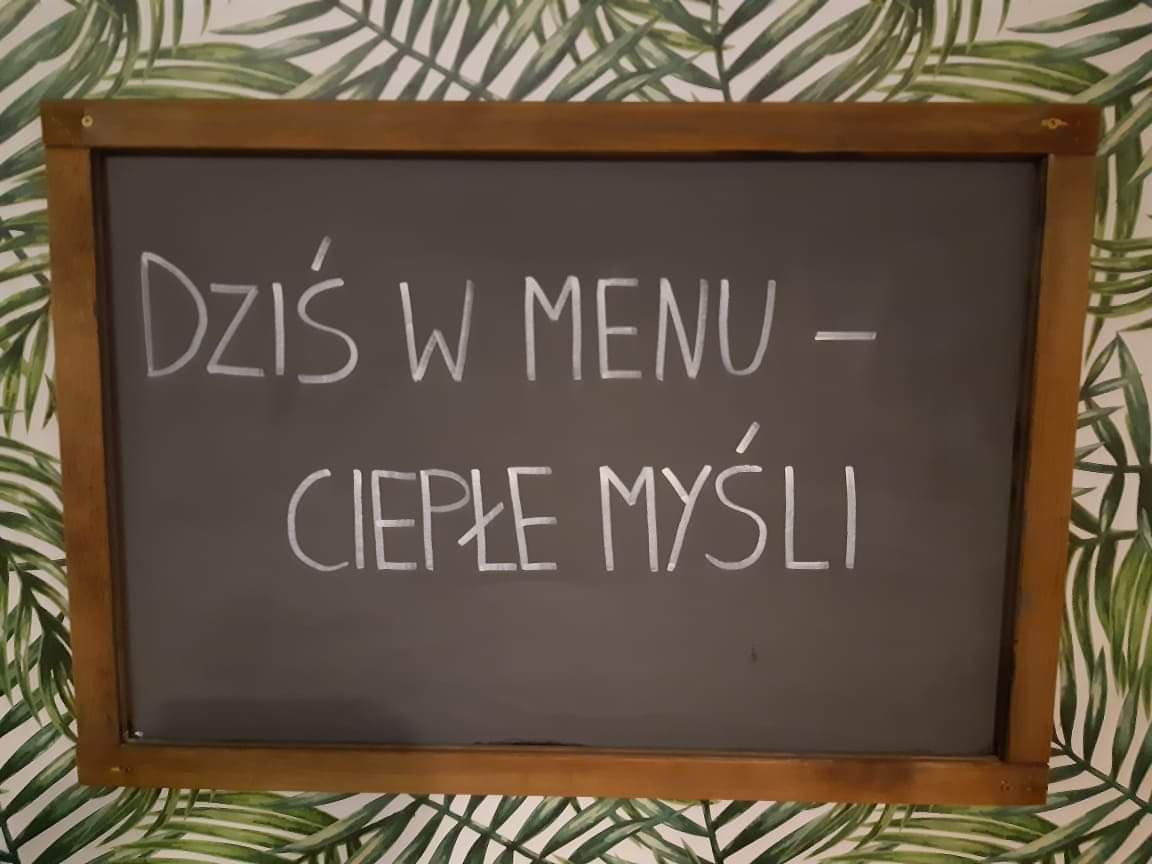 DZIŚ W MENU –
CIEPŁE MYŚLI